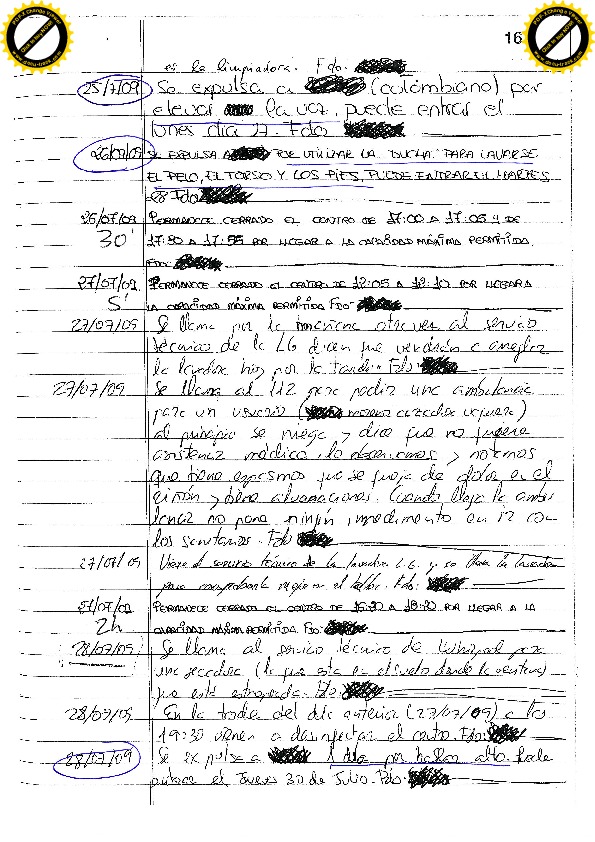 16
es la limpiadora. Fdo.
25/7/09 Se expulsa a (colombiano) por
elevar la voz, puede entrar el
lunes dia 27. Fdo
26/07/09 SE EXPULSA A POR UTILIZAR LA DUCHA PARA LAVARSE
EL PELO, EL TORSO Y LOS PIES, PUEDE ENTRAR EL MARTES
28 Fdo
26/07/09 PERMANECE CERRADO EL CENTRO DE 17:00 A 17:05 Y DE
30' 17:30 A 17:55 POR LLEGAR A LA CAPACIDAD MÁXIMA PERMITIDA
FDO:
27/07/09 PERMANECE CERRADO EL CENTRO DE 12:05 A 12:10 POR LLEGAR A
5' LA CAPACIDAD MÁXIMA PERMITIDA FDO:
27/07/09 Se llama por la mañana al servicio
técnico de la LG dicen que vendrán a arreglar
la lavadora hoy por la tarde. Fdo.
27/07/09 Se llama al 112 para pedir una ambulancia
para un usuario (
al principio se niega y dice que no quiere
asistencia médica, lo y
que tiene espasmos que se queja de dolor en el
riñón y tiene alucinaciones. Cuando llega la ambu
lancia no pone ningún impedimento en ir con
los sanitarios. Fdo
27/07/09 Viene el servicio técnico de la lavadora L.G. y se lleva la lavadora
para en el taller. Fdo.
27/07/09 PERMANECE CERRADO EL CENTRO DE A POR LLEGAR A LA
2h CAPACIDAD MÁXIMA PERMITIDA FDO:
28/07/09 Se llama al servicio técnico de Whirlpool por
una secadora (la que esta en el suelo donde la ventana)
que está estropeada. Fdo
28/07/09 En la tarde del día anterior (27/07/09) a las
19:30 vienen a desinfectar el centro. Fdo:
28/07/09 Se expulsa a 1 día por hablar alto. Puede
entrar el Jueves 30 de Julio. Fdo.